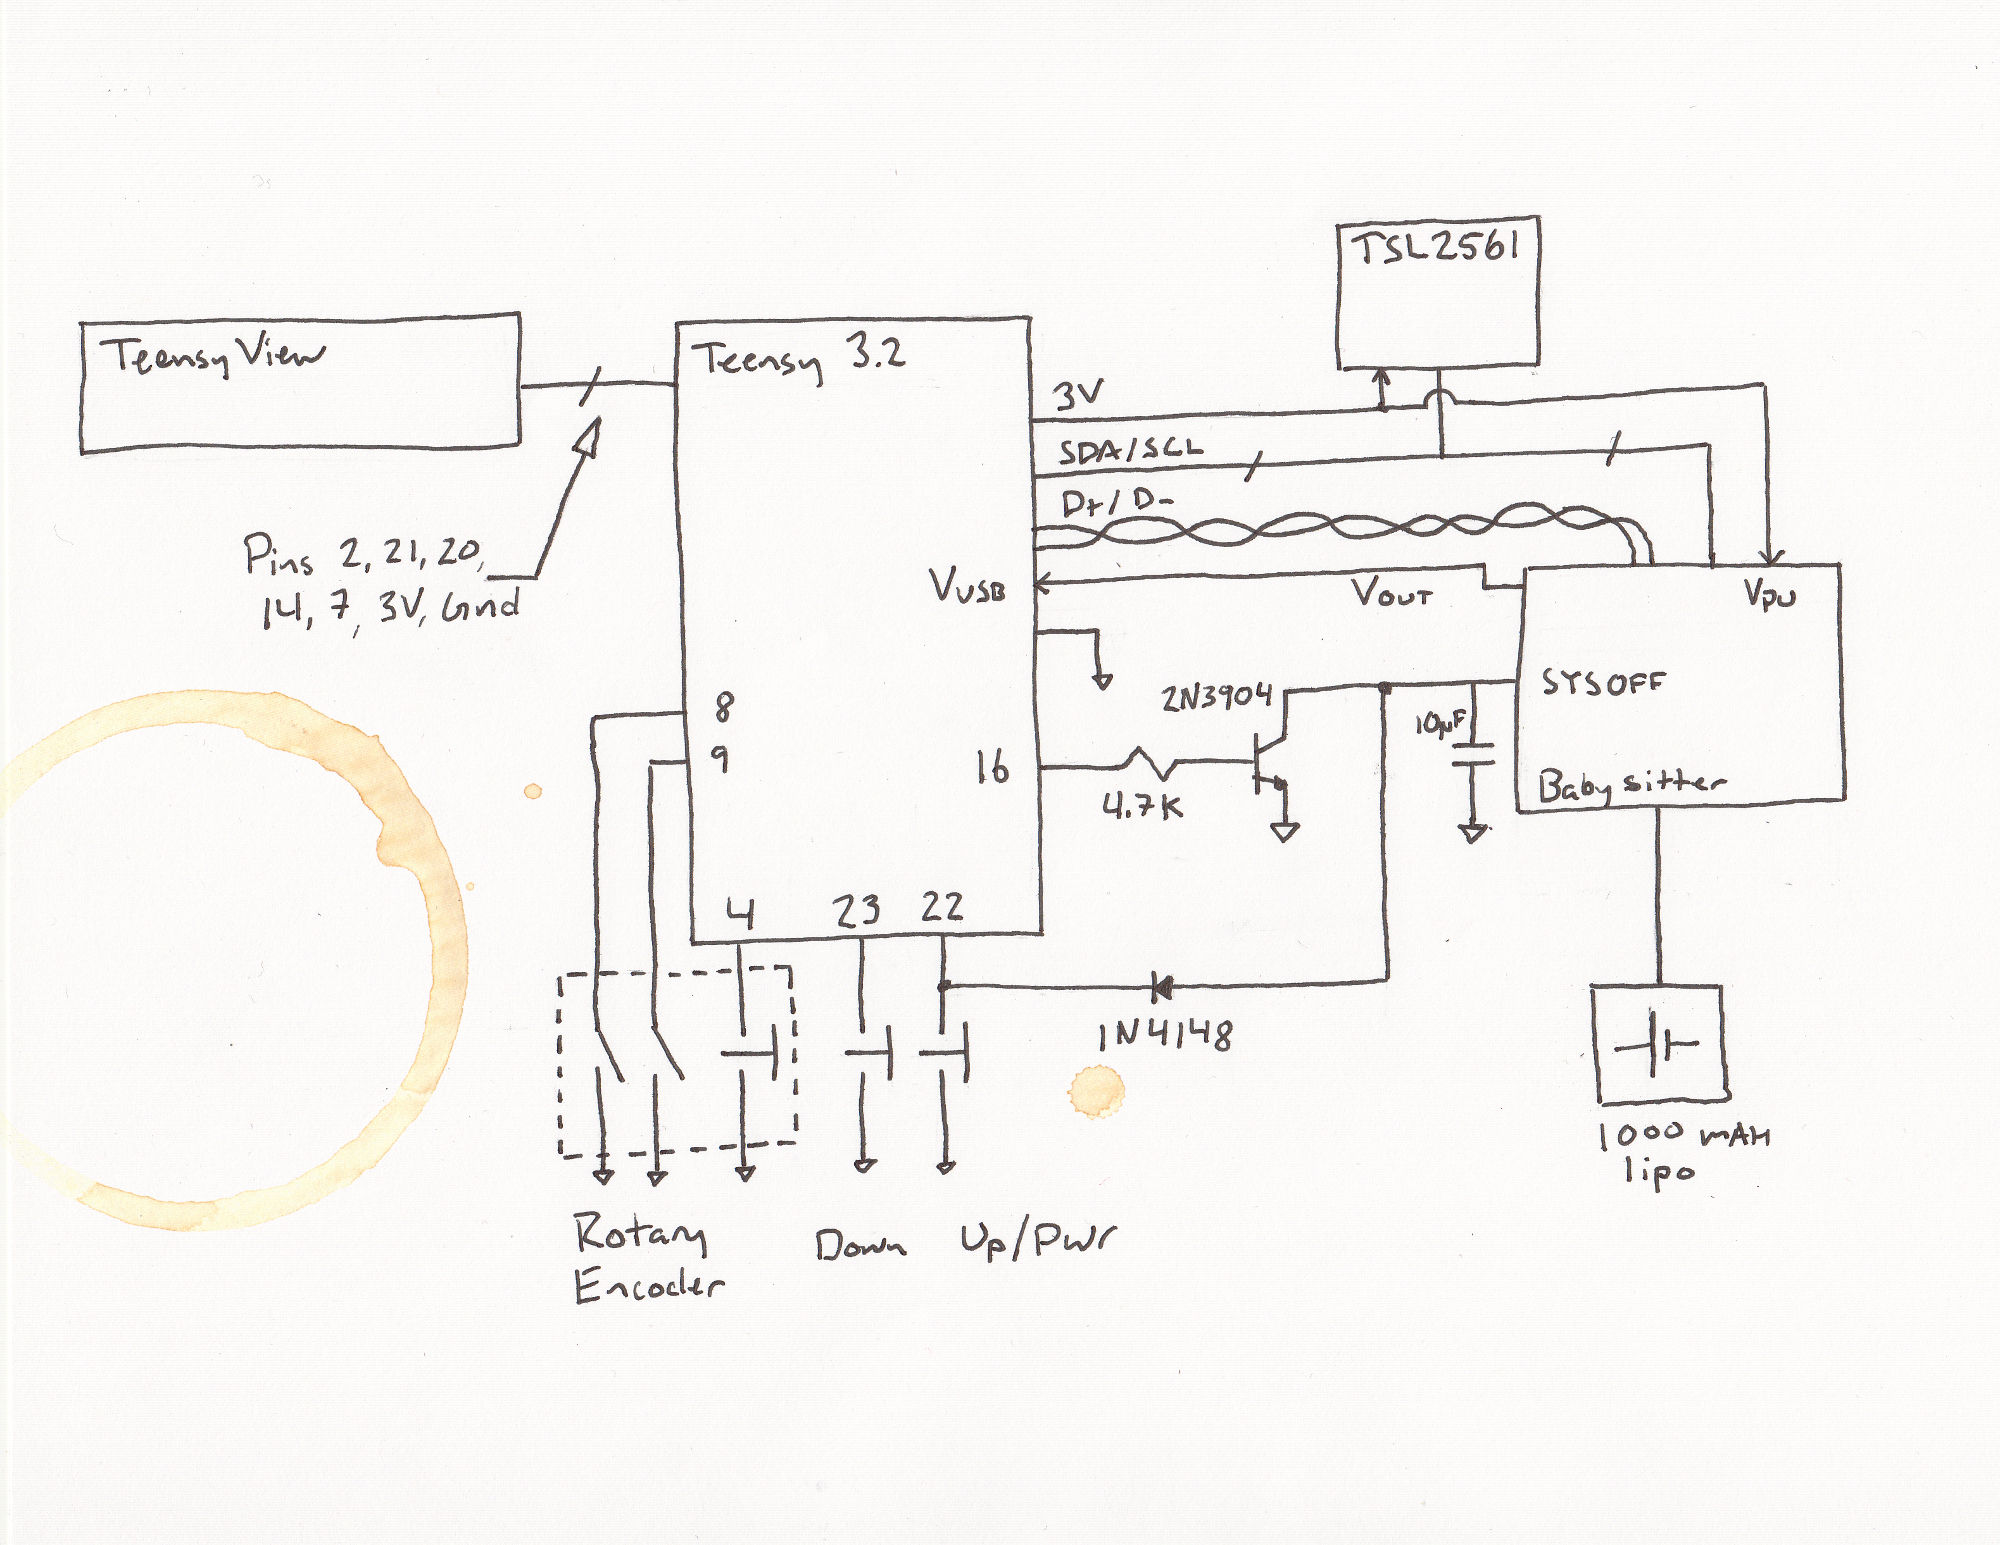 TSL2561
Teensy View
Teensy 3.2
3V
SDA/SCL
D+/D-
Pins 2, 21, 20,
14, 7, 3V, Gnd
VUSB
VOUT
VPU
2N3904
SYSOFF
8
10µF
9
16
4.7K
Babysitter
4
23
22
1N4148
1000 mAH
lipo
Rotary
Encoder
Down
Up/Pwr